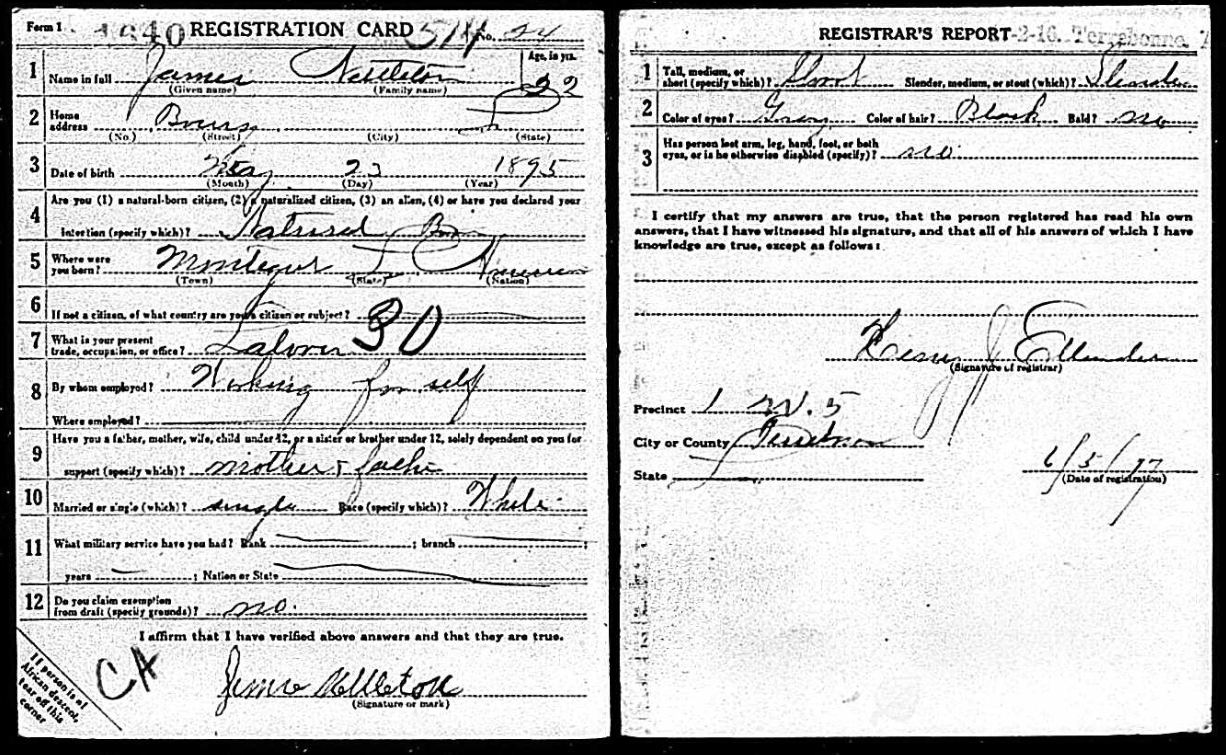 Form 1 1640 REGISTRATION CARD 514 No. 24
1 Name in full James Nettleton Age, in yrs. 22
(Given name) (Family name)
2 Home address Bourg La
(No.) (Street) (City) (State)
3 Date of birth May 23 1895
(Month) (Day) (Year)
4 Are you (1) a natural-born citizen, (2) a naturalized citizen, (3) an alien, (4) or have you declared your
intention (specify which)? Natural Born
5 Where were you born? Montegut La America
(Town) (State) (Nation)
6 If not a citizen, of what country are you a citizen or subject?
7 What is your present trade, occupation, or office? Laborer 30
8 By whom employed? Working for self
Where employed?
9 Have you a father, mother, wife, child under 12, or a sister or brother under 12, solely dependent on you for
support (specify which)? mother & father
10 Married or single (which)? single Race (specify which)? White
11 What military service have you had? Rank ; branch ;
years ; Nation or State
12 Do you claim exemption from draft (specify grounds)? no.
I affirm that I have verified above answers and that they are true.
CA
James Nettleton
(Signature or mark)
If person is of
African descent,
tear off this
corner
REGISTRAR'S REPORT 2-16. Terrebonne
1 Tall, medium, or short (specify which)? Short Slender, medium, or stout (which)? Slender
2 Color of eyes? Gray Color of hair? Black Bald? no
3 Has person lost arm, leg, hand, foot, or both
eyes, or is he otherwise disabled (specify)? no
I certify that my answers are true, that the person registered has read his own
answers, that I have witnessed his signature, and that all of his answers of which I have
knowledge are true, except as follows:
Henry J Ellender
(Signature of registrar)
Precinct 1 W. 5
City or County Terrebonne
State La 6/5/17
(Date of registration)